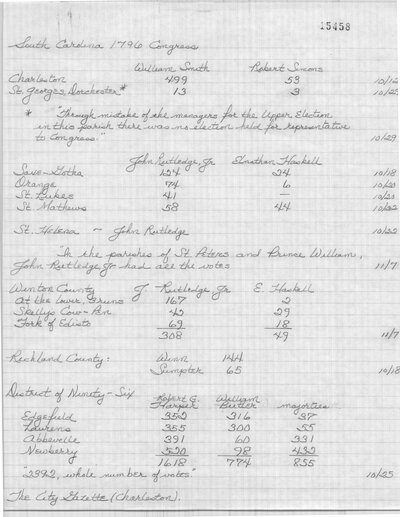 15458
South Carolina 1796 Congress
William Smith Robert Simons
Charleston 499 53 10/12
St. Georges, Dorchester* 13 3 10/25
* "Through mistake of the managers for the Upper Election
in this parish there was no election held for representative
to Congress." 10/29
John Rutledge, Jr Elnathan Haskell
Saxe-Gotha 124 24 10/18
Orange 74 6 10/20
St. Lukes 41 — 10/20
St Mathews 58 44 10/22
St. Helena ~ John Rutledge 10/22
"In the parishes of St Peters and Prince William,
John Rutledge Jr had all the votes 11/7
Winton County J - Rutledge Jr E. Haskell
At the lower, 167 2
Skellys Cow-Pen 42 29
Fork of Edisto 69 18
308 49 11/7
Richland County: Winn 144
Sumpter 65 10/18
District of Ninety-Six Robert G. Harper William Butler majorties
Edgefield 352 316 37
Laurens 355 300 55
Abbeville 391 60 331
Newberry 520 98 432
1618 774 855
"2392, whole number of votes." 10/25
The City Gazette (Charleston).